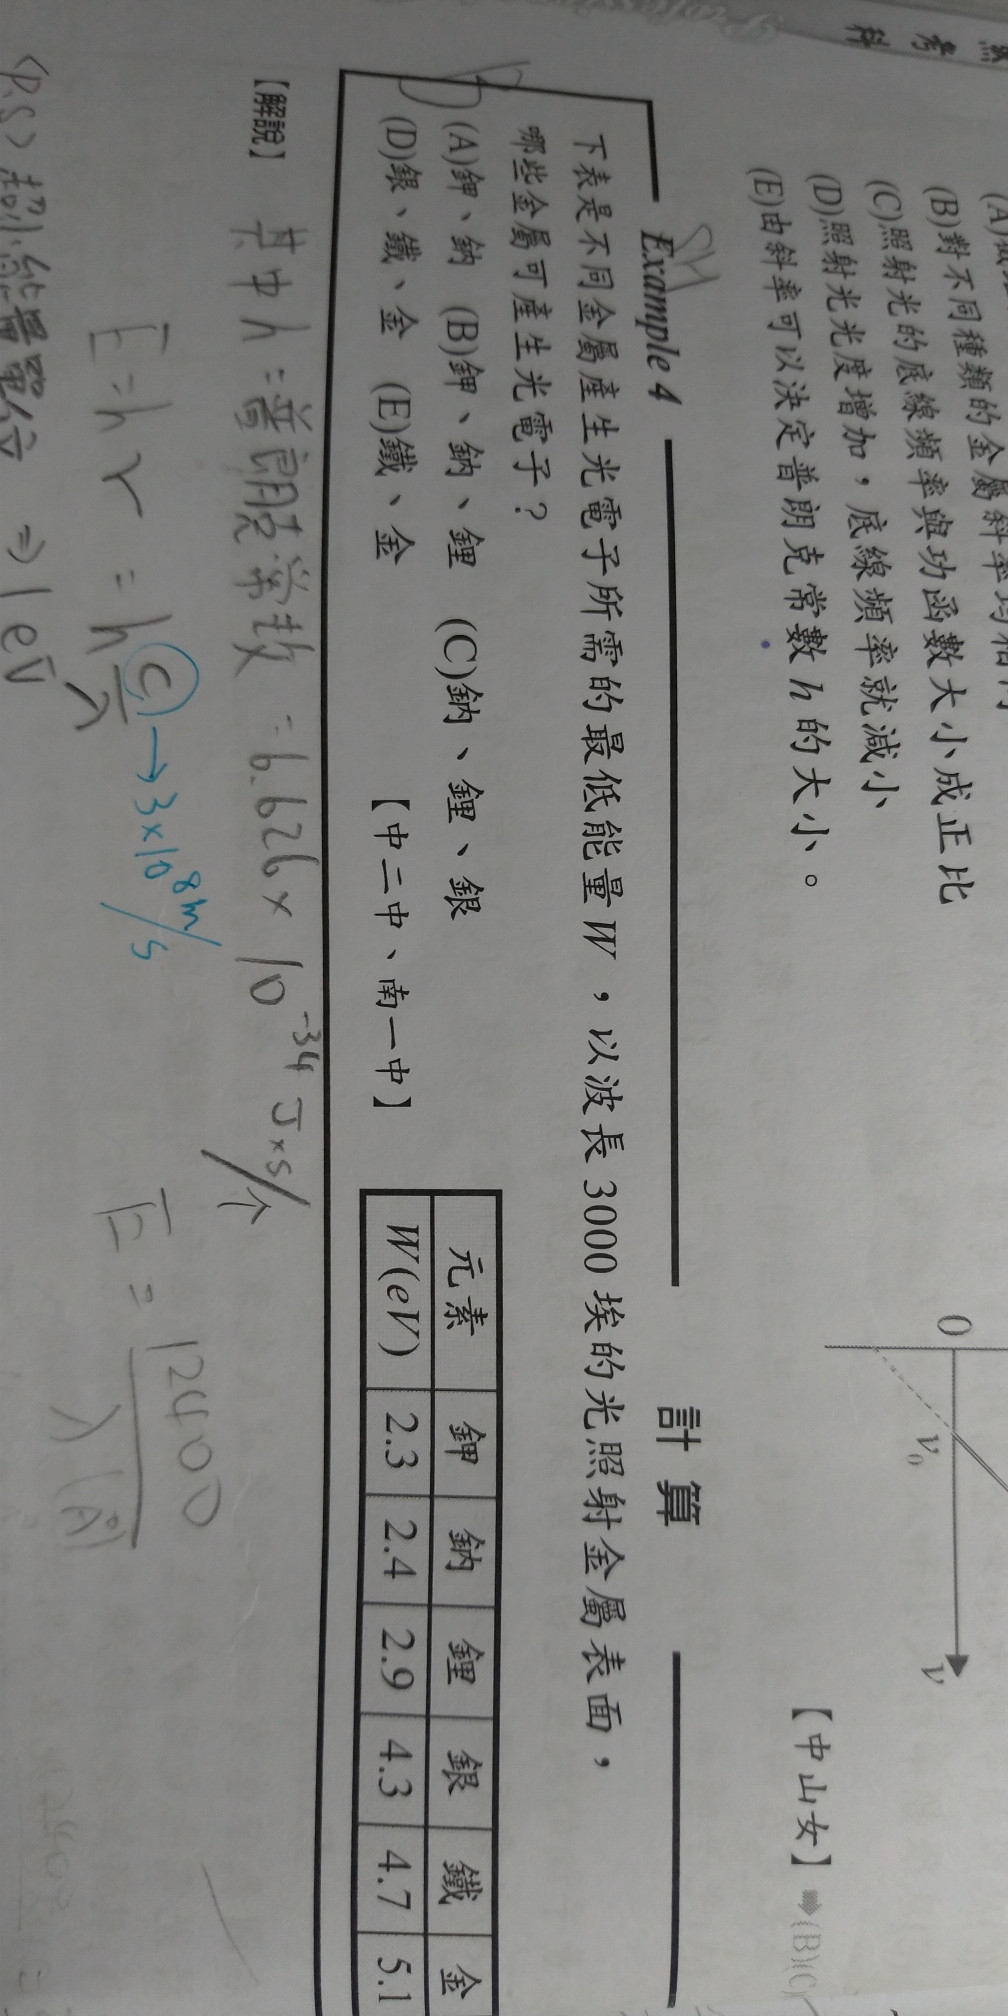 (B)對不同種類的金屬斜率均相同
(B)對不同種類的金屬底線頻率與功函數大小成正比
(C)照射光的底線頻率與功函數大小成正比
(D)照射光光度增加，底線頻率就減小
(E)由斜率可以決定普朗克常數 h 的大小。
【中山女】
0
ν₀
ν
Example 4
計算
下表是不同金屬產生光電子所需的最低能量 W，以波長 3000 埃的光照射金屬表面，
哪些金屬可產生光電子？
(A)鉀、鈉 (B)鉀、鈉、鋰 (C)鈉、鋰、銀
(D)銀、鐵、金 (E)鐵、金
【中二中、南一中】
元素 鉀 鈉 鋰 銀 鐵 金
W(eV) 2.3 2.4 2.9 4.3 4.7 5.1
【解說】
其中 h = 普朗克常數 = 6.626 × 10⁻³⁴ J×s/个
E = hν = h c/λ → 3×10⁸ m/s
E = 12400/λ(Å)
⇒ 1 eV